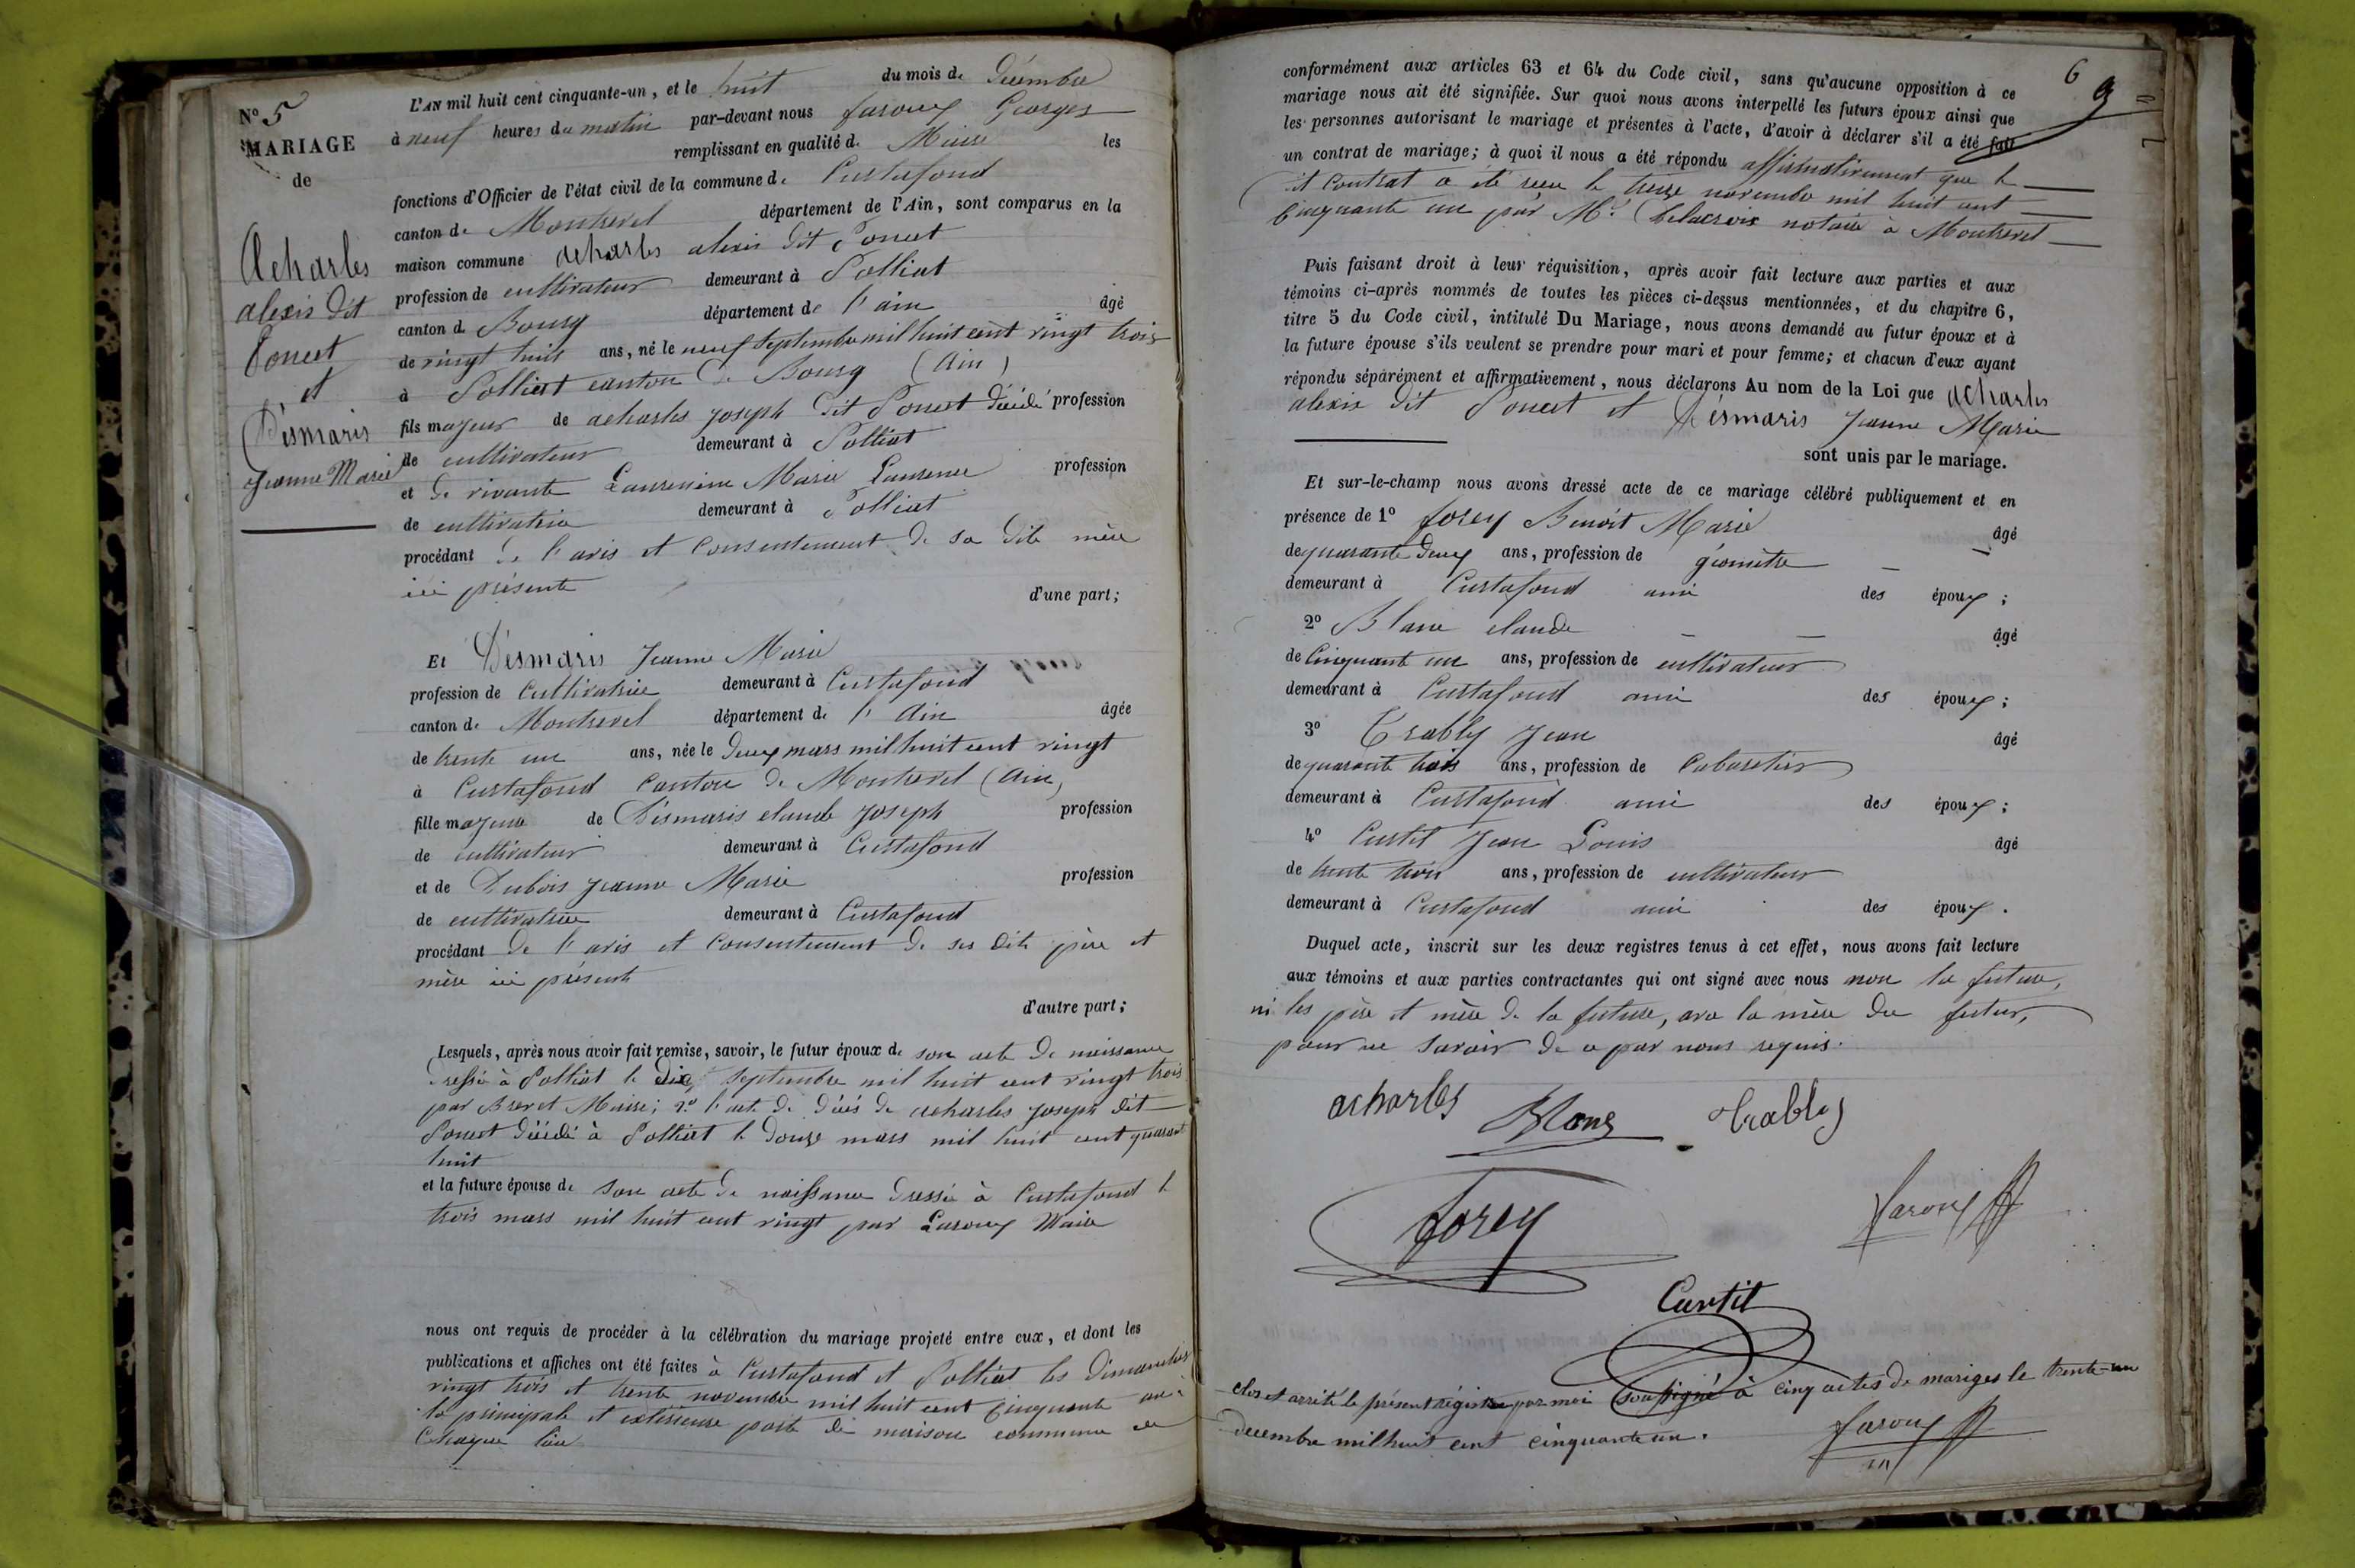 N° 5
MARIAGE
de
Acharles
alexis dit
Poncet
et
Désmaris
Jeanne Marie
L'AN mil huit cent cinquante-un, et le huit du mois de décembre
à neuf heures du matin par-devant nous faroux Georges
remplissant en qualité de Maire les
fonctions d'Officier de l'état civil de la commune de Curtafond
canton de Montrevel département de l'Ain, sont comparus en la
maison commune acharles alexis dit Poncet
profession de cultivateur demeurant à Polliat
canton de Bourg département de l'ain âgé
de vingt huit ans, né le neuf Septembre mil huit cent vingt trois
à Polliat canton de Bourg (Ain)
fils majeur de acharles joseph dit Poncet décédé profession
de cultivateur demeurant à Polliat
et de vivante Laurencin Marie Laurence profession
de cultivatrice demeurant à Polliat
procédant de l'avis et consentement de sa dite mère
ici présente
d'une part;
Et Désmaris Jeanne Marie
profession de Cultivatrice demeurant à Curtafond
canton de Montrevel département de l'Ain âgée
de trente un ans, née le deux mars mil huit cent vingt
à Curtafond Canton de Montrevel (Ain)
fille majeure de Désmaris claude joseph profession
de cultivateur demeurant à Curtafond
et de Dubois jeanne Marie profession
de cultivatrice demeurant à Curtafond
procédant de l'avis et consentement de ses dits père et
mère ici présents
d'autre part;
Lesquels, après nous avoir fait remise, savoir, le futur époux de son acte de naissance
dressé à Polliat le dix septembre mil huit cent vingt trois
par Brevet Maire; 2° l'acte de décés de acharles joseph dit
Poncet décédé à Polliat le douze mars mil huit cent quarant
huit
et la future épouse de son acte de naissance dressé à Curtafond le
trois mars mil huit cent vingt par Laroux Maire
nous ont requis de procéder à la célébration du mariage projeté entre eux, et dont les
publications et affiches ont été faites à Curtafond et Polliat les dimanches
vingt trois et trente novembre mil huit cent cinquante un à
la principale et extérieure porte de maison commune de
Chaque lieu
6
9
conformément aux articles 63 et 64 du Code civil, sans qu'aucune opposition à ce
mariage nous ait été signifiée. Sur quoi nous avons interpellé les futurs époux ainsi que
les personnes autorisant le mariage et présentes à l'acte, d'avoir à déclarer s'il a été fait
un contrat de mariage; à quoi il nous a été répondu affirmativement que le
dit contrat a été reçu le treize novembre mil huit cent
Cinquante un par Me. Delacroix notaire à Montrevel
Puis faisant droit à leur réquisition, après avoir fait lecture aux parties et aux
témoins ci-après nommés de toutes les pièces ci-dessus mentionnées, et du chapitre 6,
titre 5 du Code civil, intitulé Du Mariage, nous avons demandé au futur époux et à
la future épouse s'ils veulent se prendre pour mari et pour femme; et chacun d'eux ayant
répondu séparément et affirmativement, nous déclarons Au nom de la Loi que acharles
alexis dit Poncet et Désmaris Jeanne Marie
sont unis par le mariage.
Et sur-le-champ nous avons dressé acte de ce mariage célébré publiquement et en
présence de 1° forey Benoit Marie âgé
de quarante deux ans, profession de géomètre
demeurant à Curtafond ami des époux;
2° Blanc claude âgé
de Cinquante un ans, profession de cultivateur
demeurant à Curtafond ami des époux;
3° Trably Jean âgé
de quarante trois ans, profession de Cabaretier
demeurant à Curtafond ami des époux;
4° Curtil Jean Louis âgé
de trente trois ans, profession de cultivateur
demeurant à Curtafond ami des époux.
Duquel acte, inscrit sur les deux registres tenus à cet effet, nous avons fait lecture
aux témoins et aux parties contractantes qui ont signé avec nous non la future,
ni les père et mère de la future, ni la mère du futur,
pour ne savoir de ce par nous requis.
acharles Blanc Trably
forey faroux
Curtil
clos et arrêté le présent régistre par moi soussigné à cinq actes de mariges le trente-un
decembre mil huit cent cinquante un. faroux